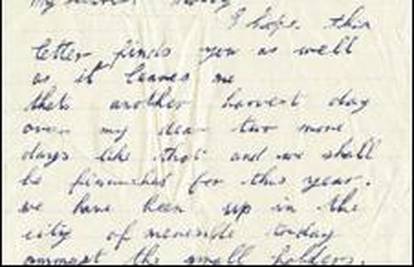 My
I hope this
letter finds you as well
as it leaves me
thats another harvest day
over my dear two more
days like that and we shall
be finnished for this year.
we have been up in the
city of today
amongst the small holders.